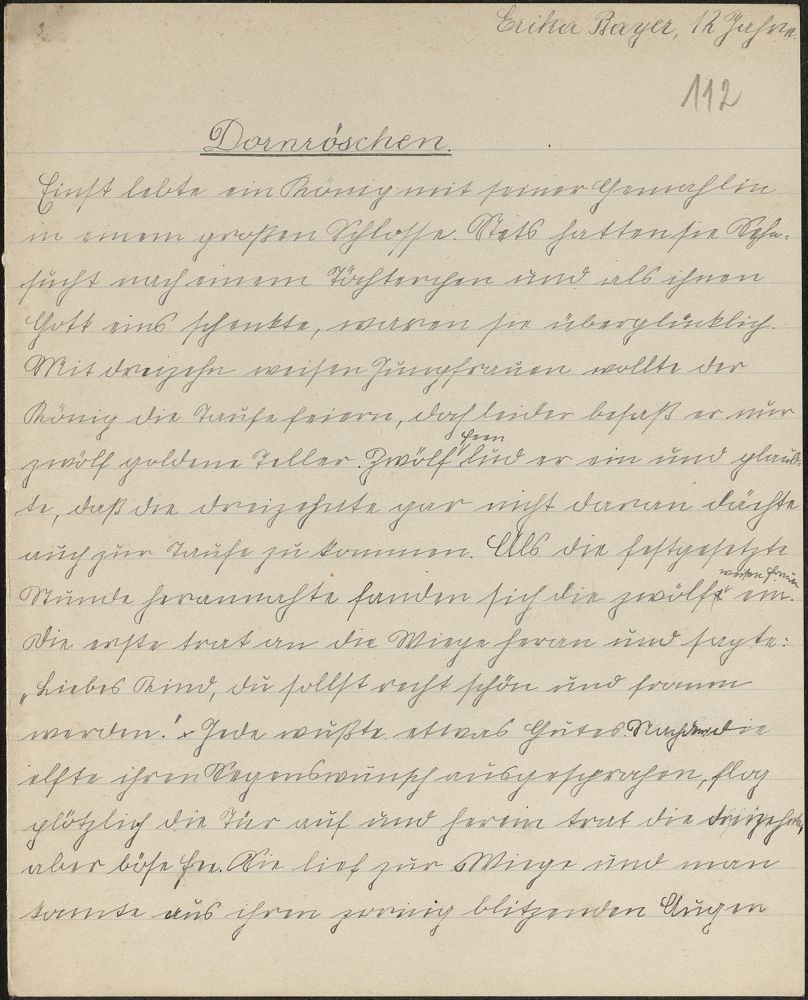 3.
Erika Bayer, 12 Jahre.
112
Dornröschen.
Einst lebte ein König mit seiner Gemahlin
in einem großen Schlosse. Stets hatten sie Sehn-
sucht nach einem Töchterchen und als ihnen
Gott eins schenkte, waren sie überglücklich.
Mit dreizehn weisen Jungfrauen wollte der
König die Taufe feiern, doch leider besaß er nur
Feen
zwölf goldene Teller. Zwölf lud er ein und glaub-
te, daß die dreizehnte gar nicht daran dächte
auch zur Taufe zu kommen. Als die festgesetzte
weisen Frauen
Stunde herannahte fanden sich die zwölf ein.
Die erste trat an die Wiege heran und sagte:
„Liebes Kind, du sollst recht schön und fromm
werden." Jede wußte etwas Gutes. Nachdem die
elfte ihren Segenswunsch ausgesprochen, flog
plötzlich die Tür auf und herein trat die dreizehnte,
aber böse Fee. Sie lief zur Wiege und man
konnte aus ihren zornig blitzenden Augen